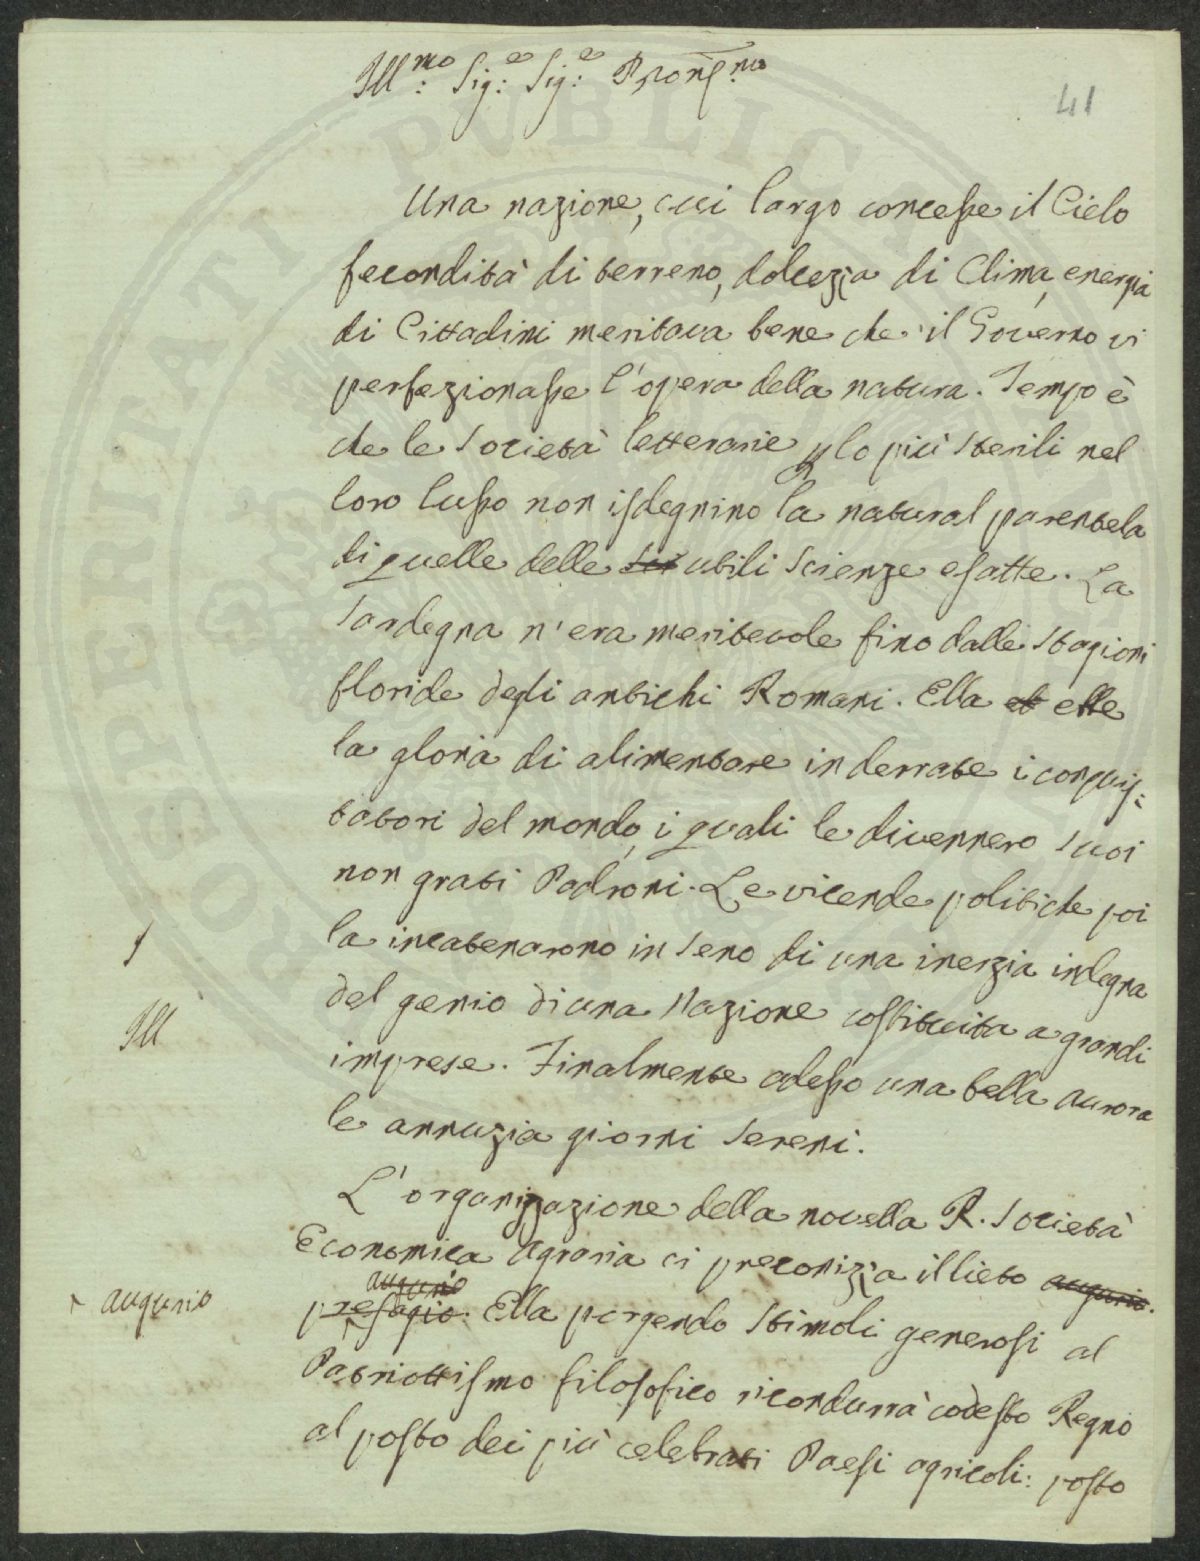 Ill.mo Sig.e Sig.e Pron
41
Una nazione, cui largo concesse il Cielo
fecondità di terreno, dolcezza di Clima, energia
di Cittadini meritava bene che il Governo vi
perfezionasse l'opera della natura. Tempo è
che le Società letterarie p lo più sterili nel
loro lusso non isdegnino la natural parentela
di quelle delle utili Scienze esatte. La
Sardegna n'era meritevole fino dalle Stagioni
floride degli antichi Romani. Ella ebbe
la gloria di alimentare in derrate i conquis=
tatori del mondo, i quali le divennero suoi
non grati Padroni. Le vicende politiche poi
la incatenarono in seno di una inerzia indegna
del genio di una Nazione costituita a grandi
Ill
imprese. Finalmente adesso una bella aurora
le annuzia giorni sereni.
L'organizzazione della novella R. Società
Economica Agraria ci preconizza il lieto augurio.
augurio
augurio
presagio. Ella porgendo stimoli generosi al
Patriottismo filosofico ricondurrà codesto Regno
al posto dei più celebrati Paesi agricoli: posto
PUBLICAE
PROSPERITATI